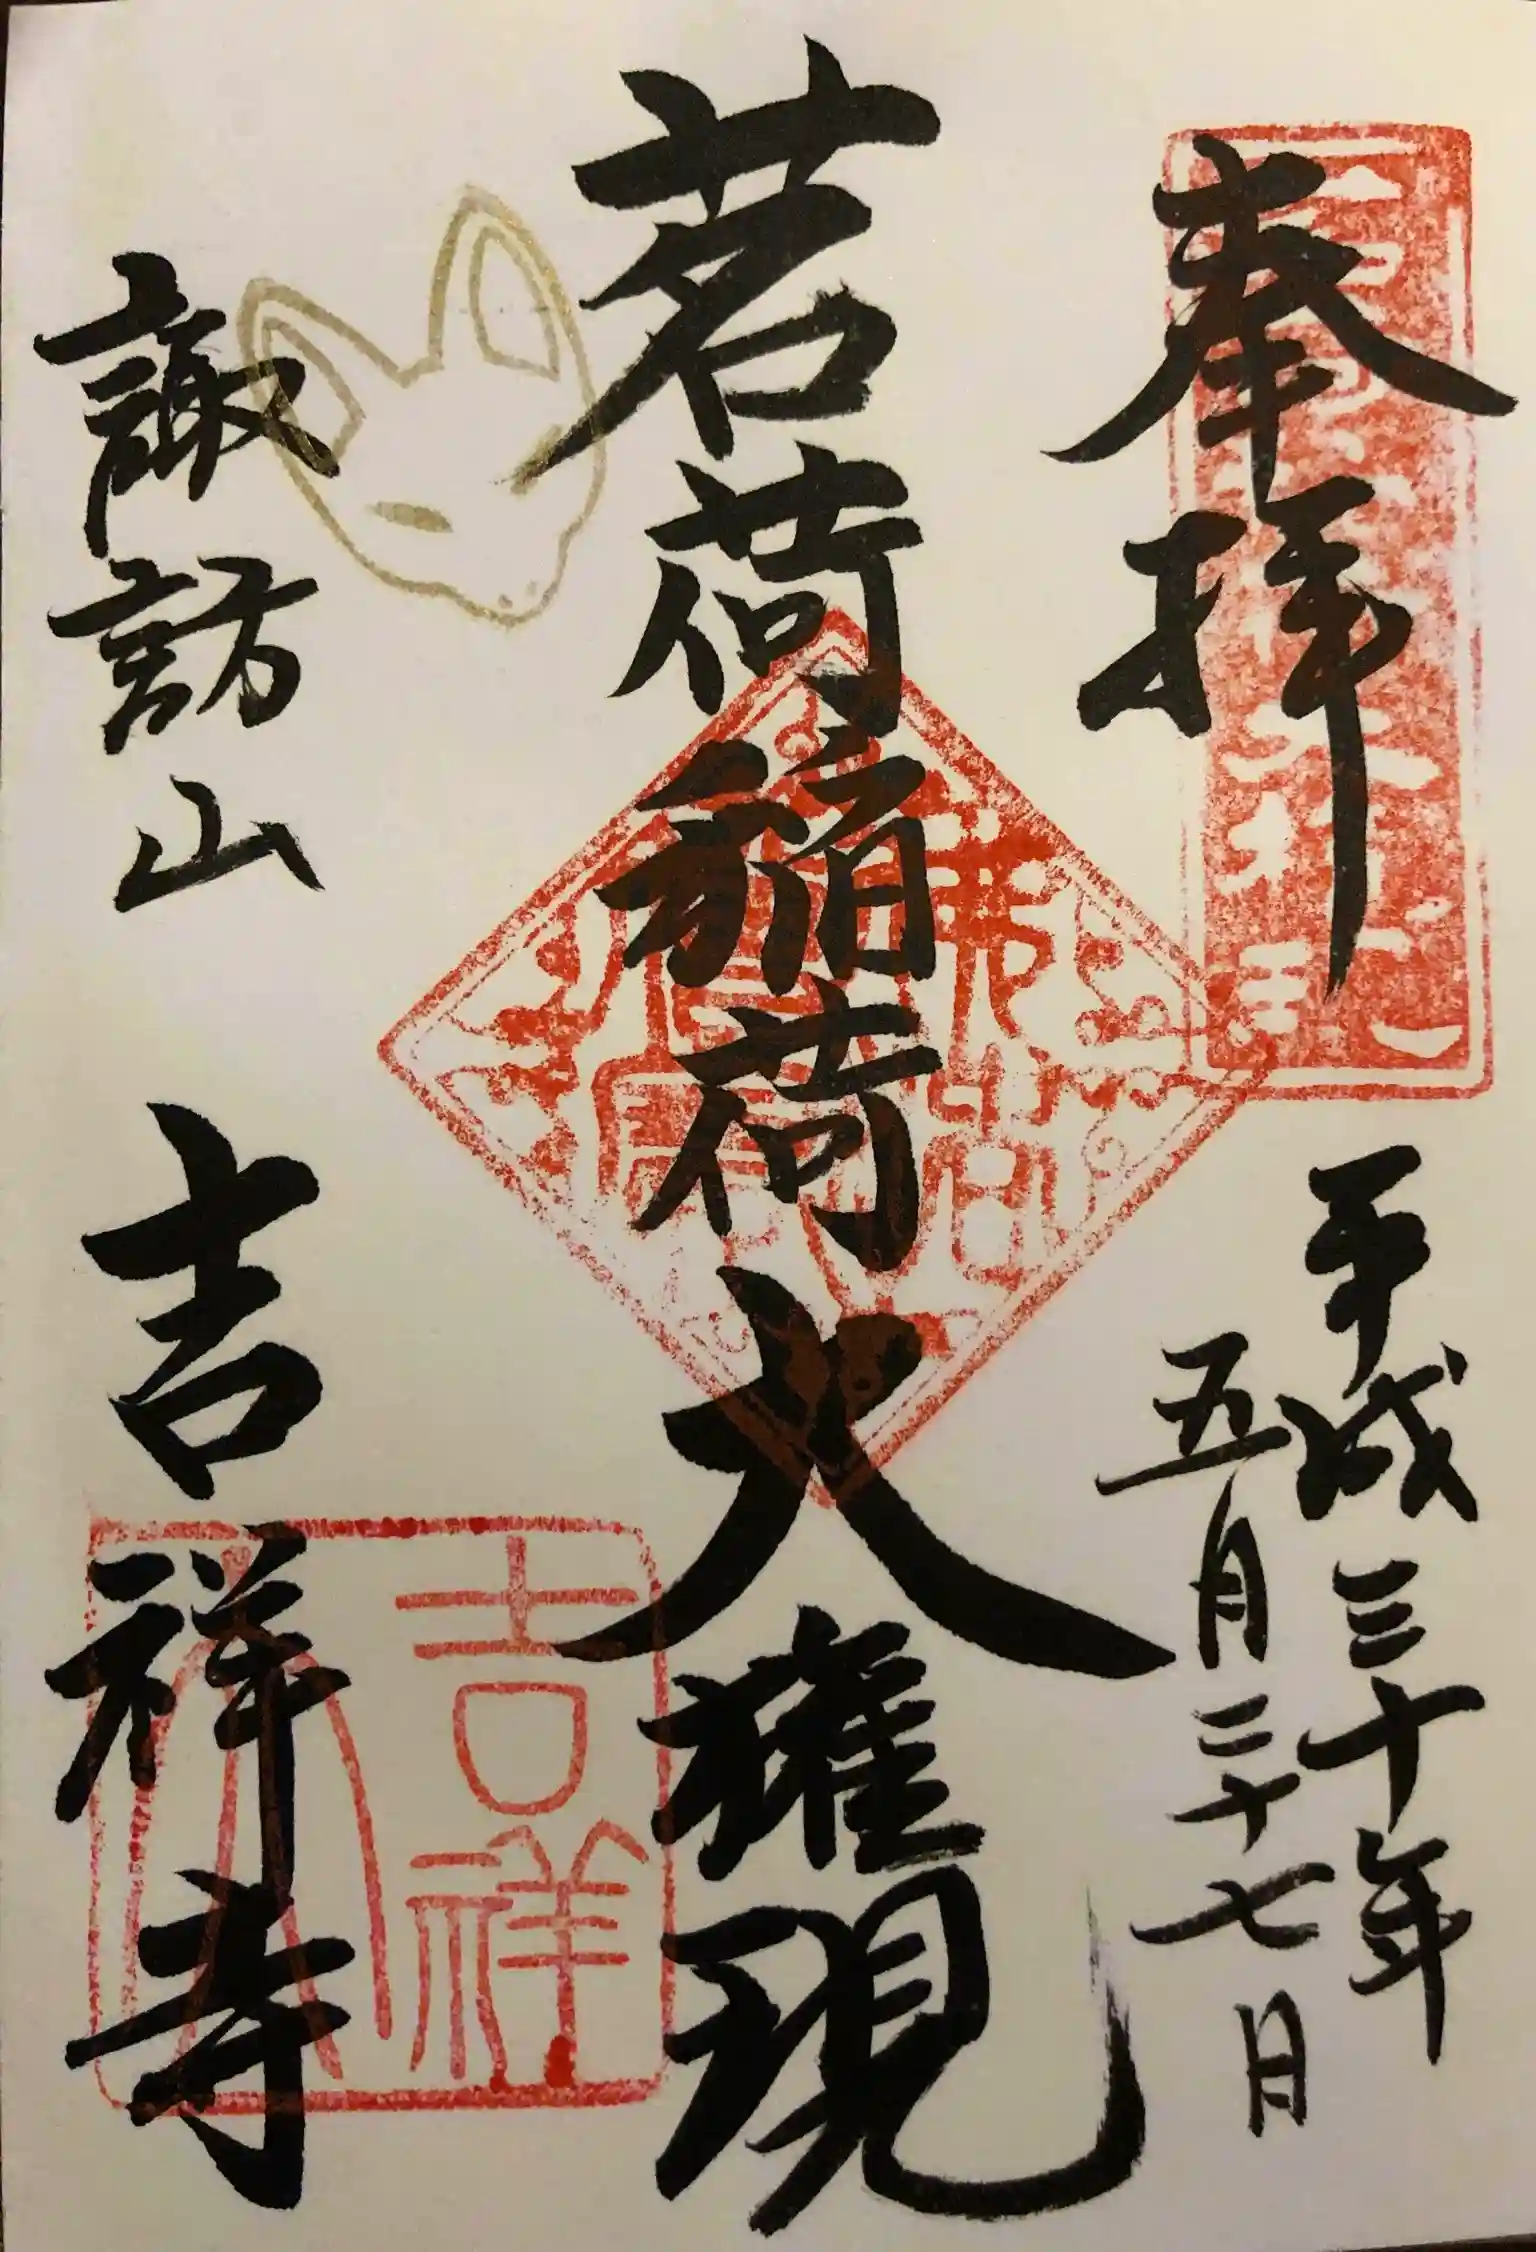 奉拝
平成三十年
五月二十七日
茗荷稲荷大権現
諏訪山 吉祥寺
吉祥